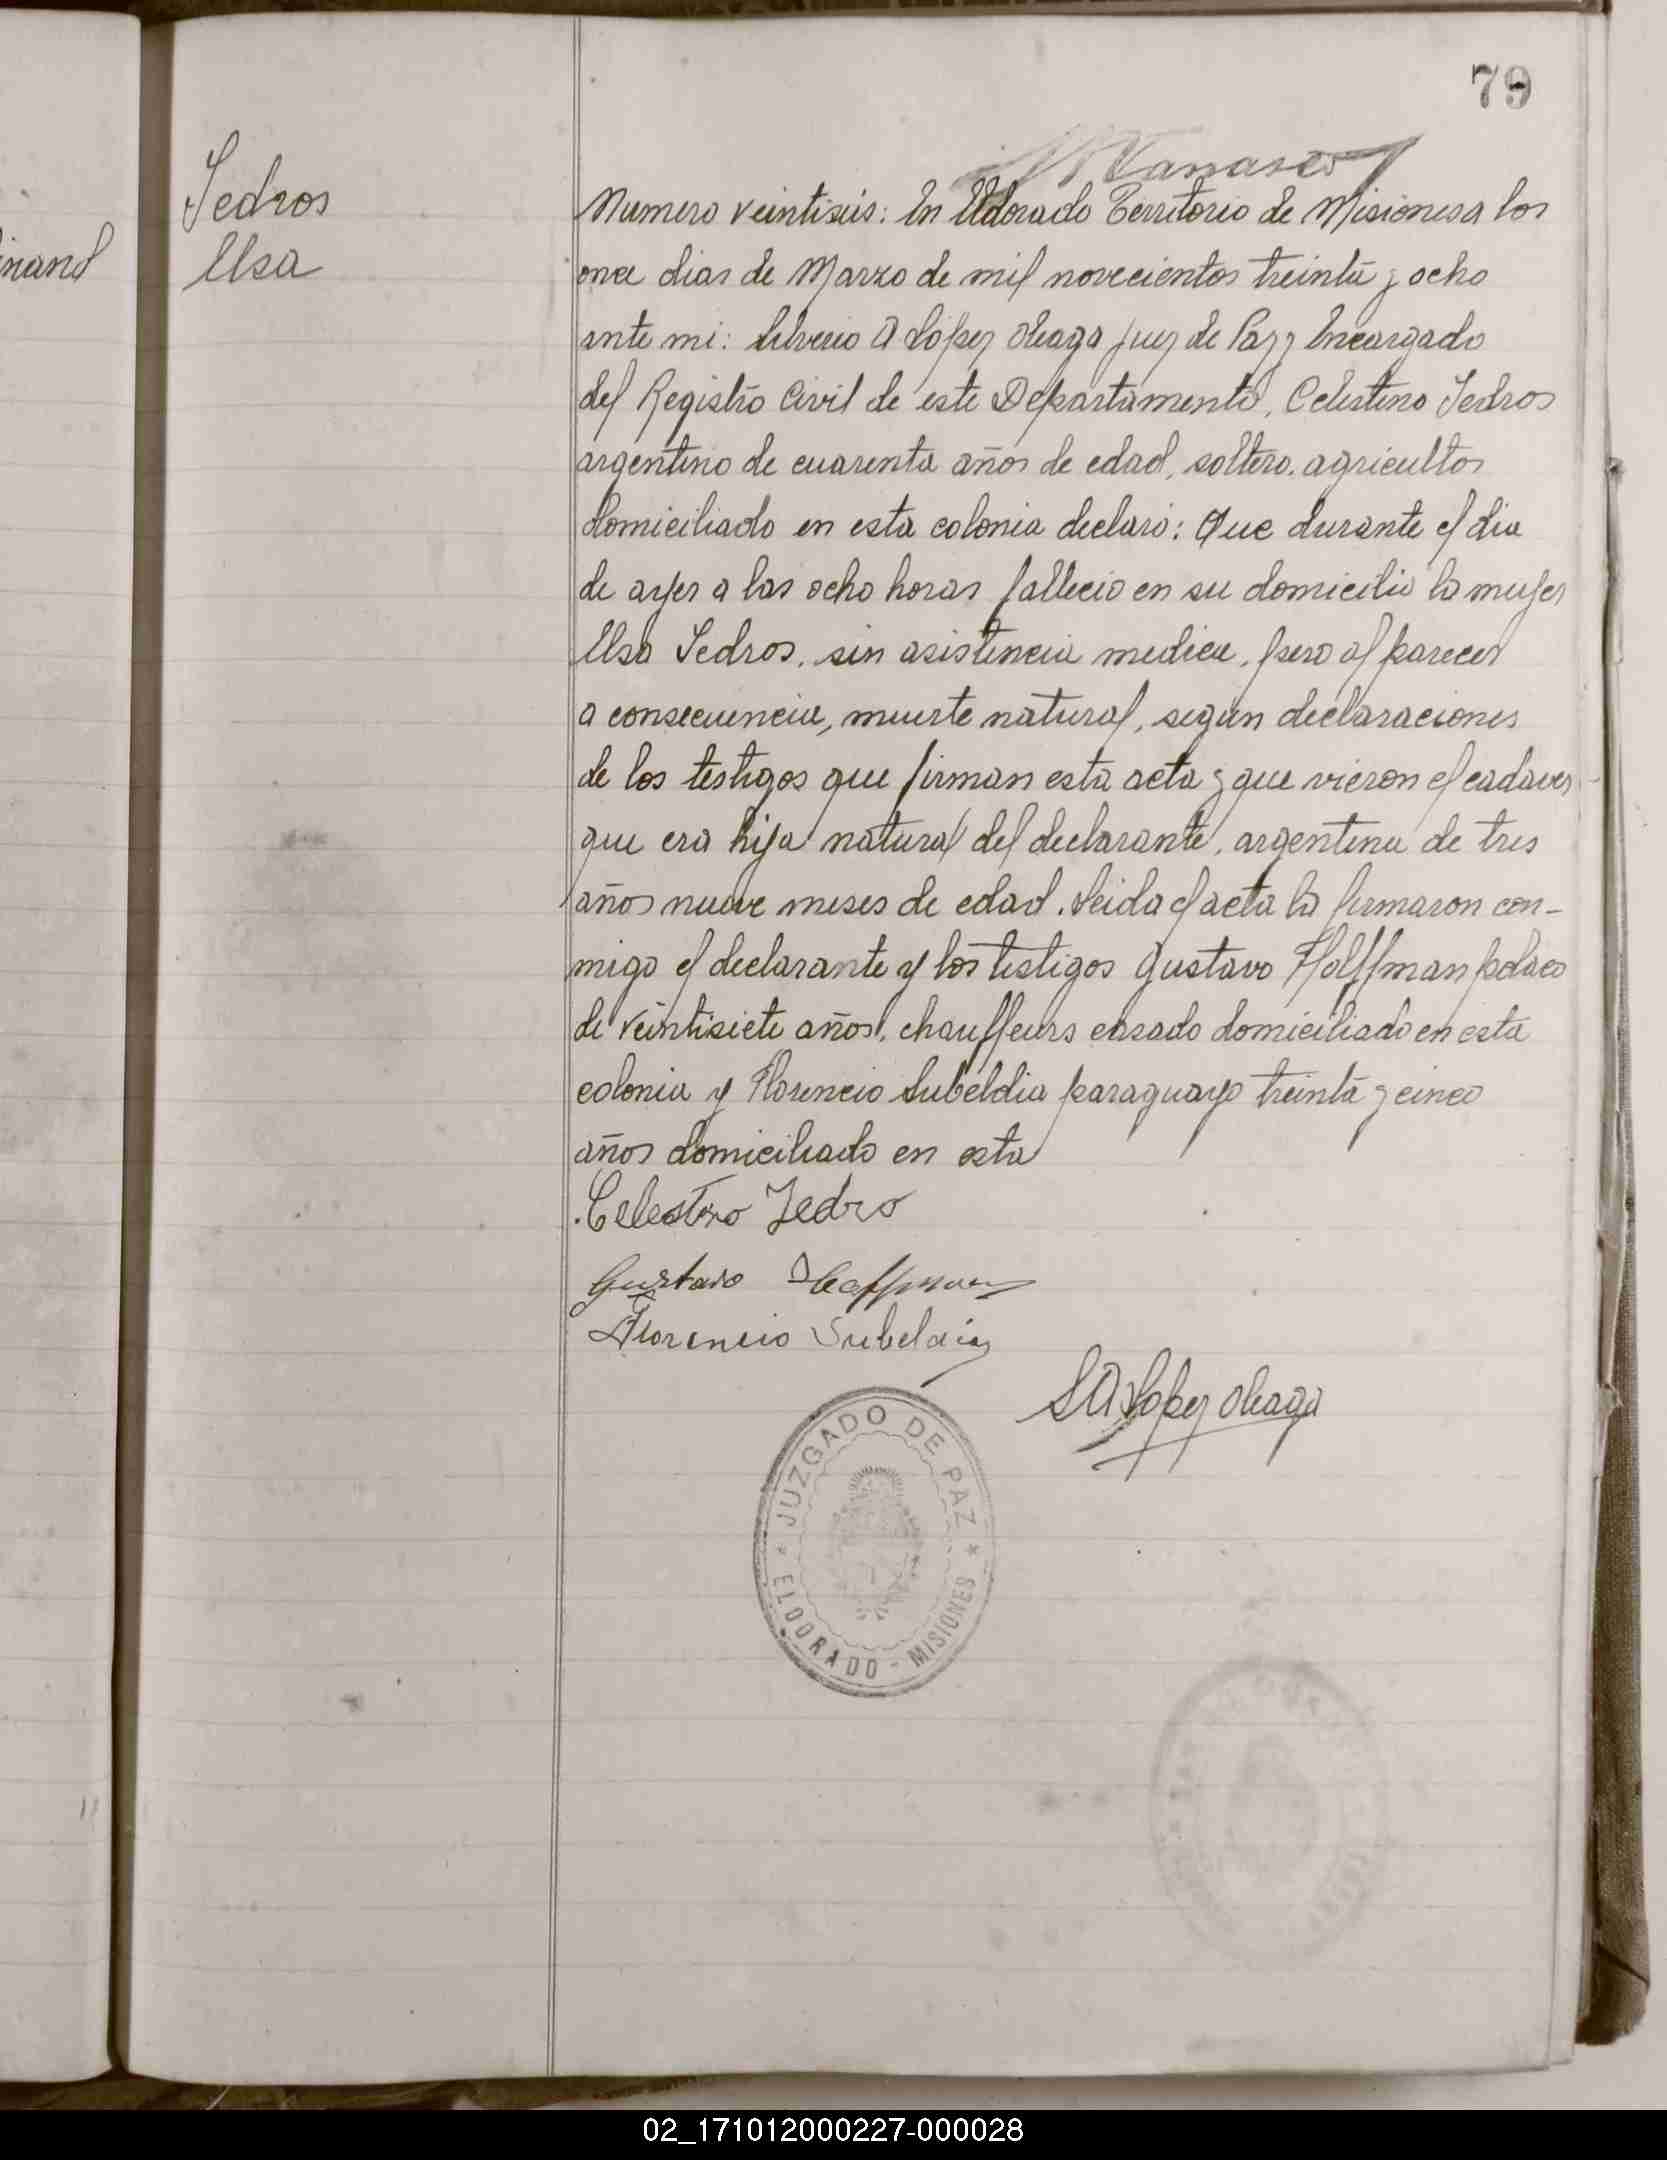 79
Vanasco
inand
Sedros
Elsa
Numero veintiseis: En Eldorado Territorio de Misiones a los
once dias de Marzo de mil novecientos treinta y ocho
ante mi: Silverio A López Oleaga Juez de Paz y Encargado
del Registro Civil de este Departamento, Celestino Sedros
argentino de cuarenta años de edad, soltero, agricultor
domiciliado en esta colonia declaró: Que durante el dia
de ayer a las ocho horas fallecio en su domicilio la mujer
Elsa Sedros, sin asistencia medica, pero al parecer
a consecuencia, muerte natural, segun declaraciones
de los testigos que firman esta acta y que vieron el cadaver
que era hija natural del declarante, argentina de tres
años nueve meses de edad. Leida el acta la firmaron con-
migo el declarante y los testigos Gustavo Holffman polaco
de veintisiete años, chauffeurs casado domiciliado en esta
colonia y Florencio Subeldia paraguayo treinta y cinco
años domiciliado en esta
Celestino Sedro
Gustavo Hoffman
Florencio Subeldia
S A López Oleaga
JUZGADO DE PAZ
ELDORADO - MISIONES
02_171012000227-000028